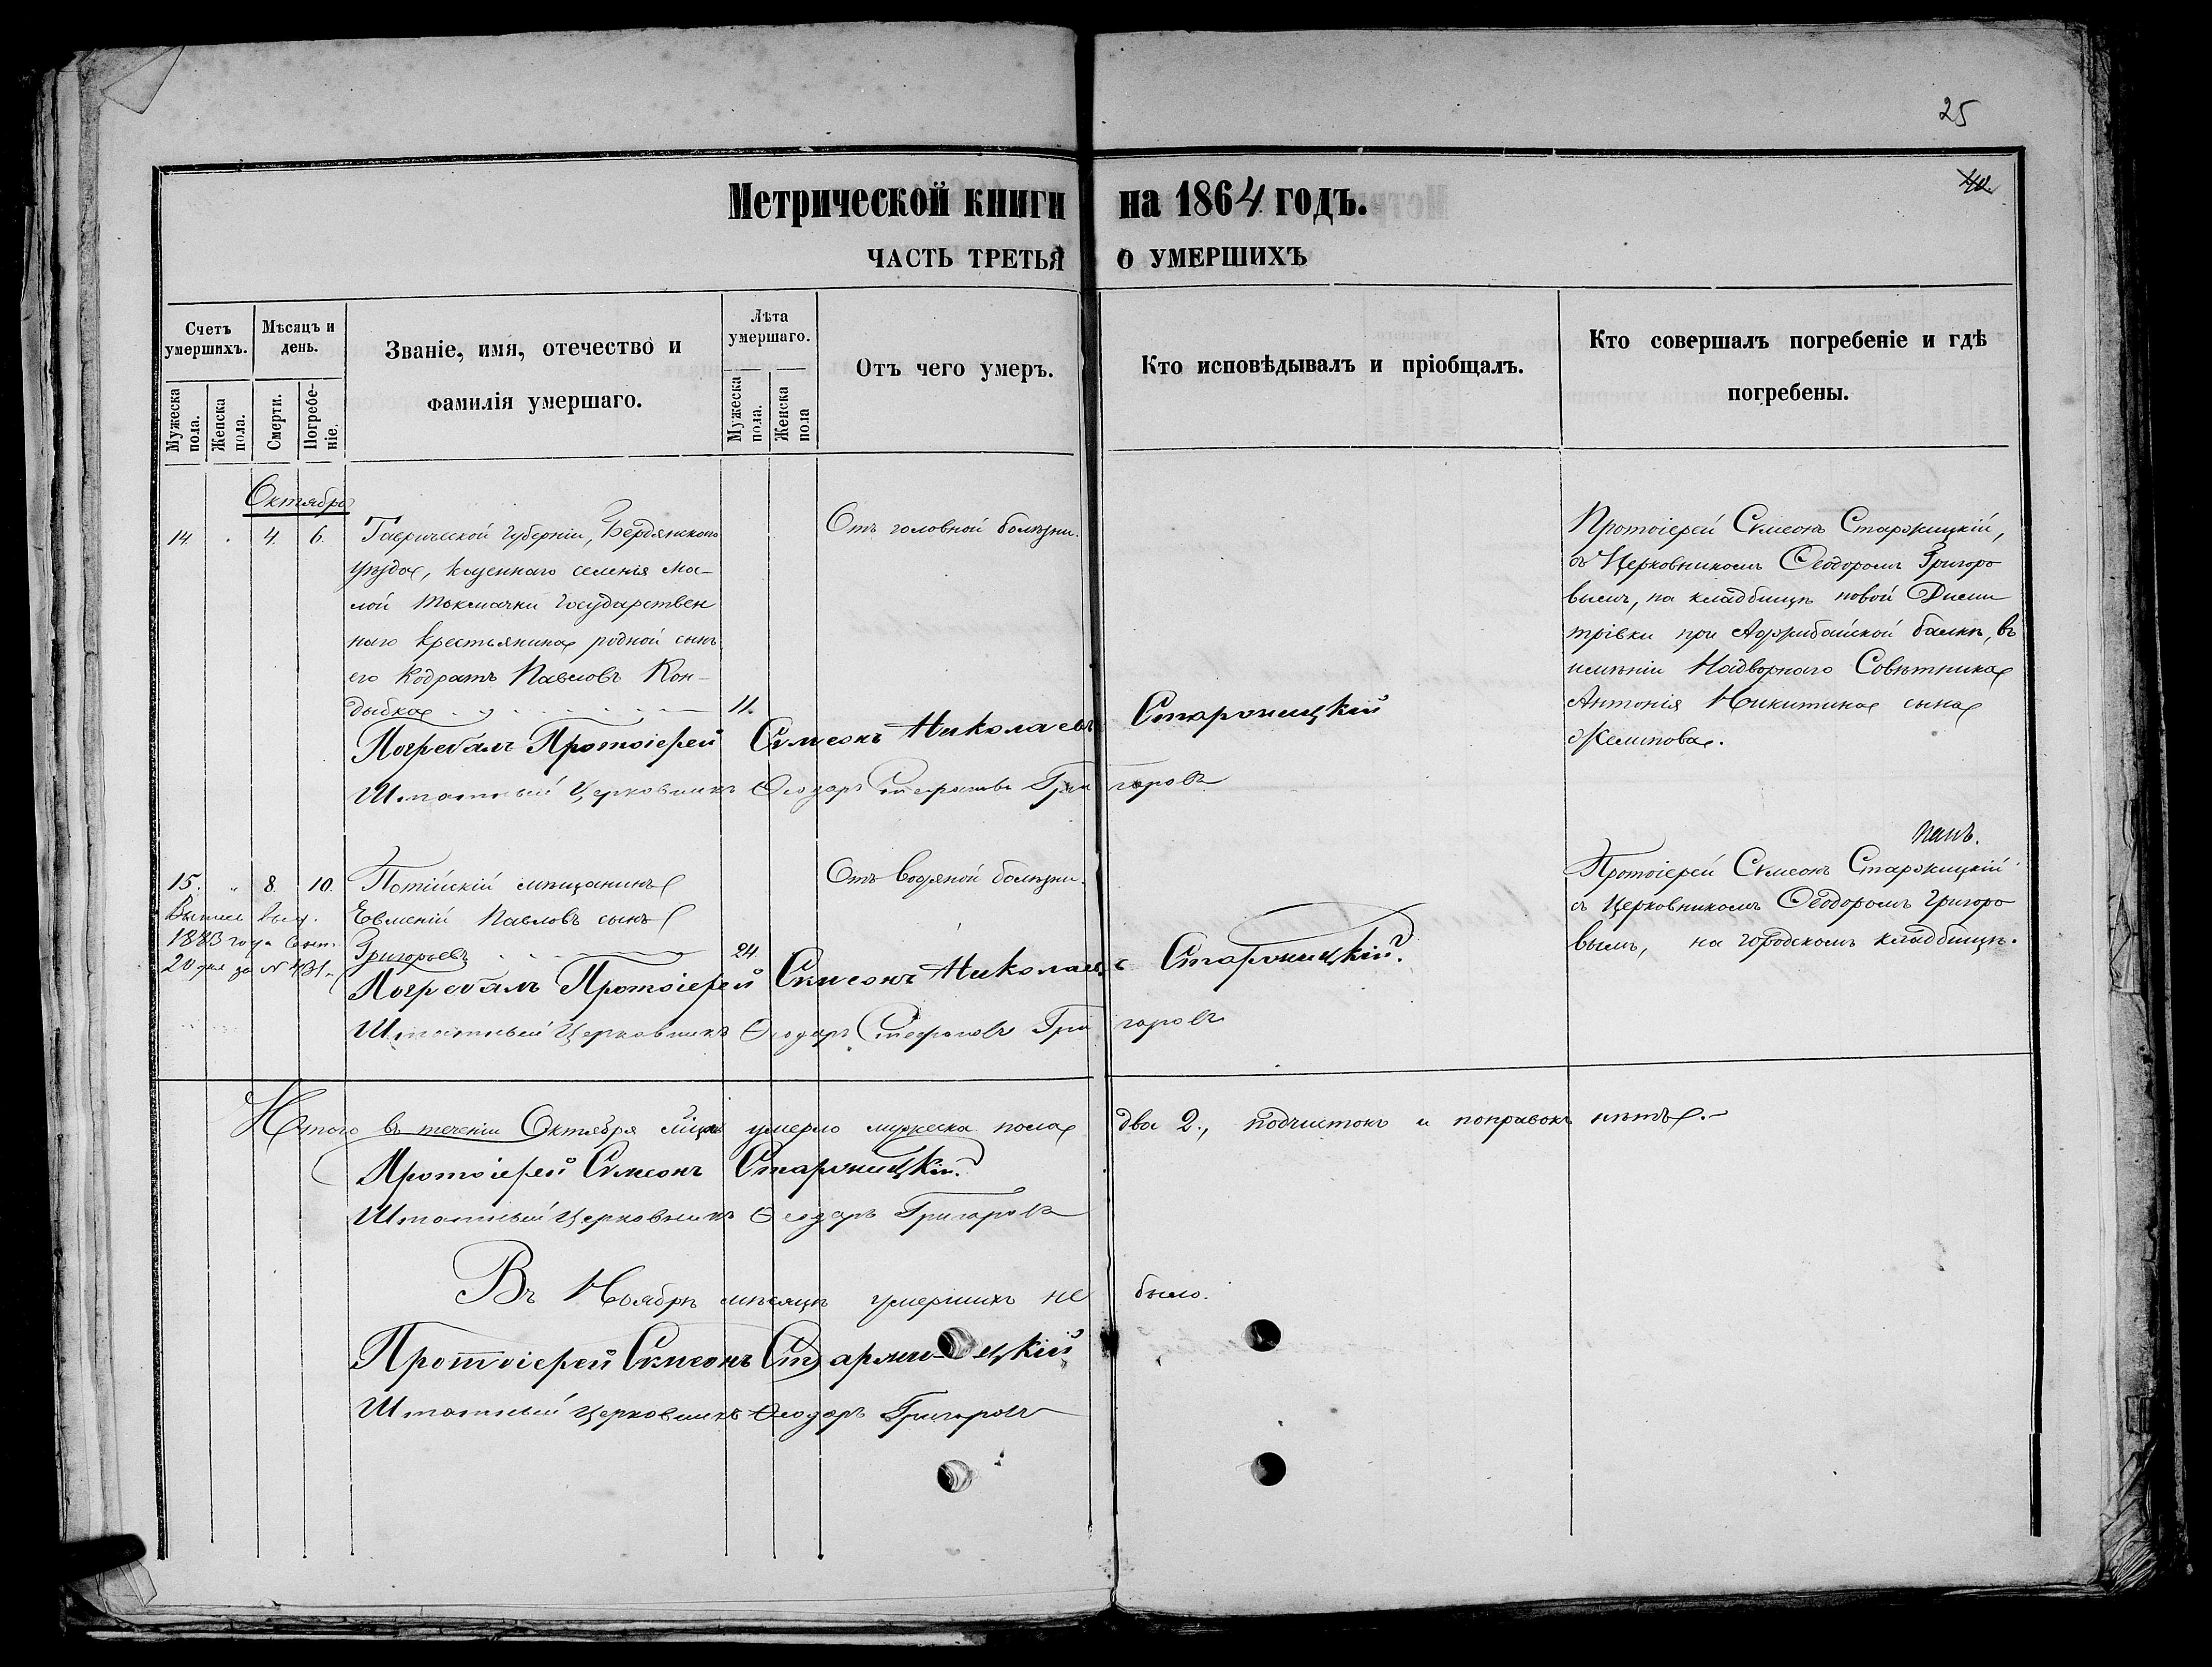 25
40.
Метрической книги на 1864 годъ.
ЧАСТЬ ТРЕТЬЯ О УМЕРШИХЪ
Счетъ умершихъ.
Мужеска пола.
Женска пола.
Мѣсяцъ и день.
Смерти.
Погребе-ніе.
Званіе, имя, отечество и
фамилія умершаго.
Лѣта умершаго.
Мужеска пола.
Женска пола
Отъ чего умеръ.
Кто исповѣдывалъ и пріобщалъ.
Кто совершалъ погребеніе и гдѣ
погребены.
Октябрь
14. 4. 6. Таврической губерніи, Бердянскаго
уѣзда, казеннаго селенія Ма-
лой Токмачки Государствен
наго крестьянина родной сынъ
его Кодратъ Павловъ Кон-
дыбка 11.
Отъ головной болѣзни.
Протоіерей Сѵмеонъ Старожицкій,
съ Церковникомъ Ѳеодоромъ Григоро
вымъ, на кладбищѣ новой Дими
трівки при Аджибайской балкѣ, въ
имѣніи Надворнаго Совѣтника
Антонія Никитина сына
Погребалъ Протоіерей Сѵмеонъ Николаевъ Старожицкій
Штатный Церковникъ Ѳеодоръ Стефановъ Григоровъ
15. 8. 10. Потійскій мѣщанинъ
Евменій Павловъ сынъ
Григорьевъ 24.
1883 года Сент.
20 дня за № 431.
Отъ водяной болѣзни.
Протоіерей Сѵмеонъ Старожицкій
съ Церковникомъ Ѳеодоромъ Григоро
вымъ, на городскомъ кладбищѣ.
Погребалъ Протоіерей Сѵмеонъ Николаевъ Старожицкій.
Штатный Церковникъ Ѳеодоръ Стефановъ Григоровъ
Итого въ теченіи Октября мѣсяца умерло мужеска пола два 2., подчистокъ и поправокъ нѣтъ.
Протоіерей Сѵмеонъ Старожицкій.
Штатный Церковникъ Ѳеодоръ Григоровъ
Въ Ноябрѣ мѣсяцѣ умершихъ не было.
Протоіерей Сѵмеонъ Старожицкій
Штатный Церковникъ Ѳеодоръ Григоровъ